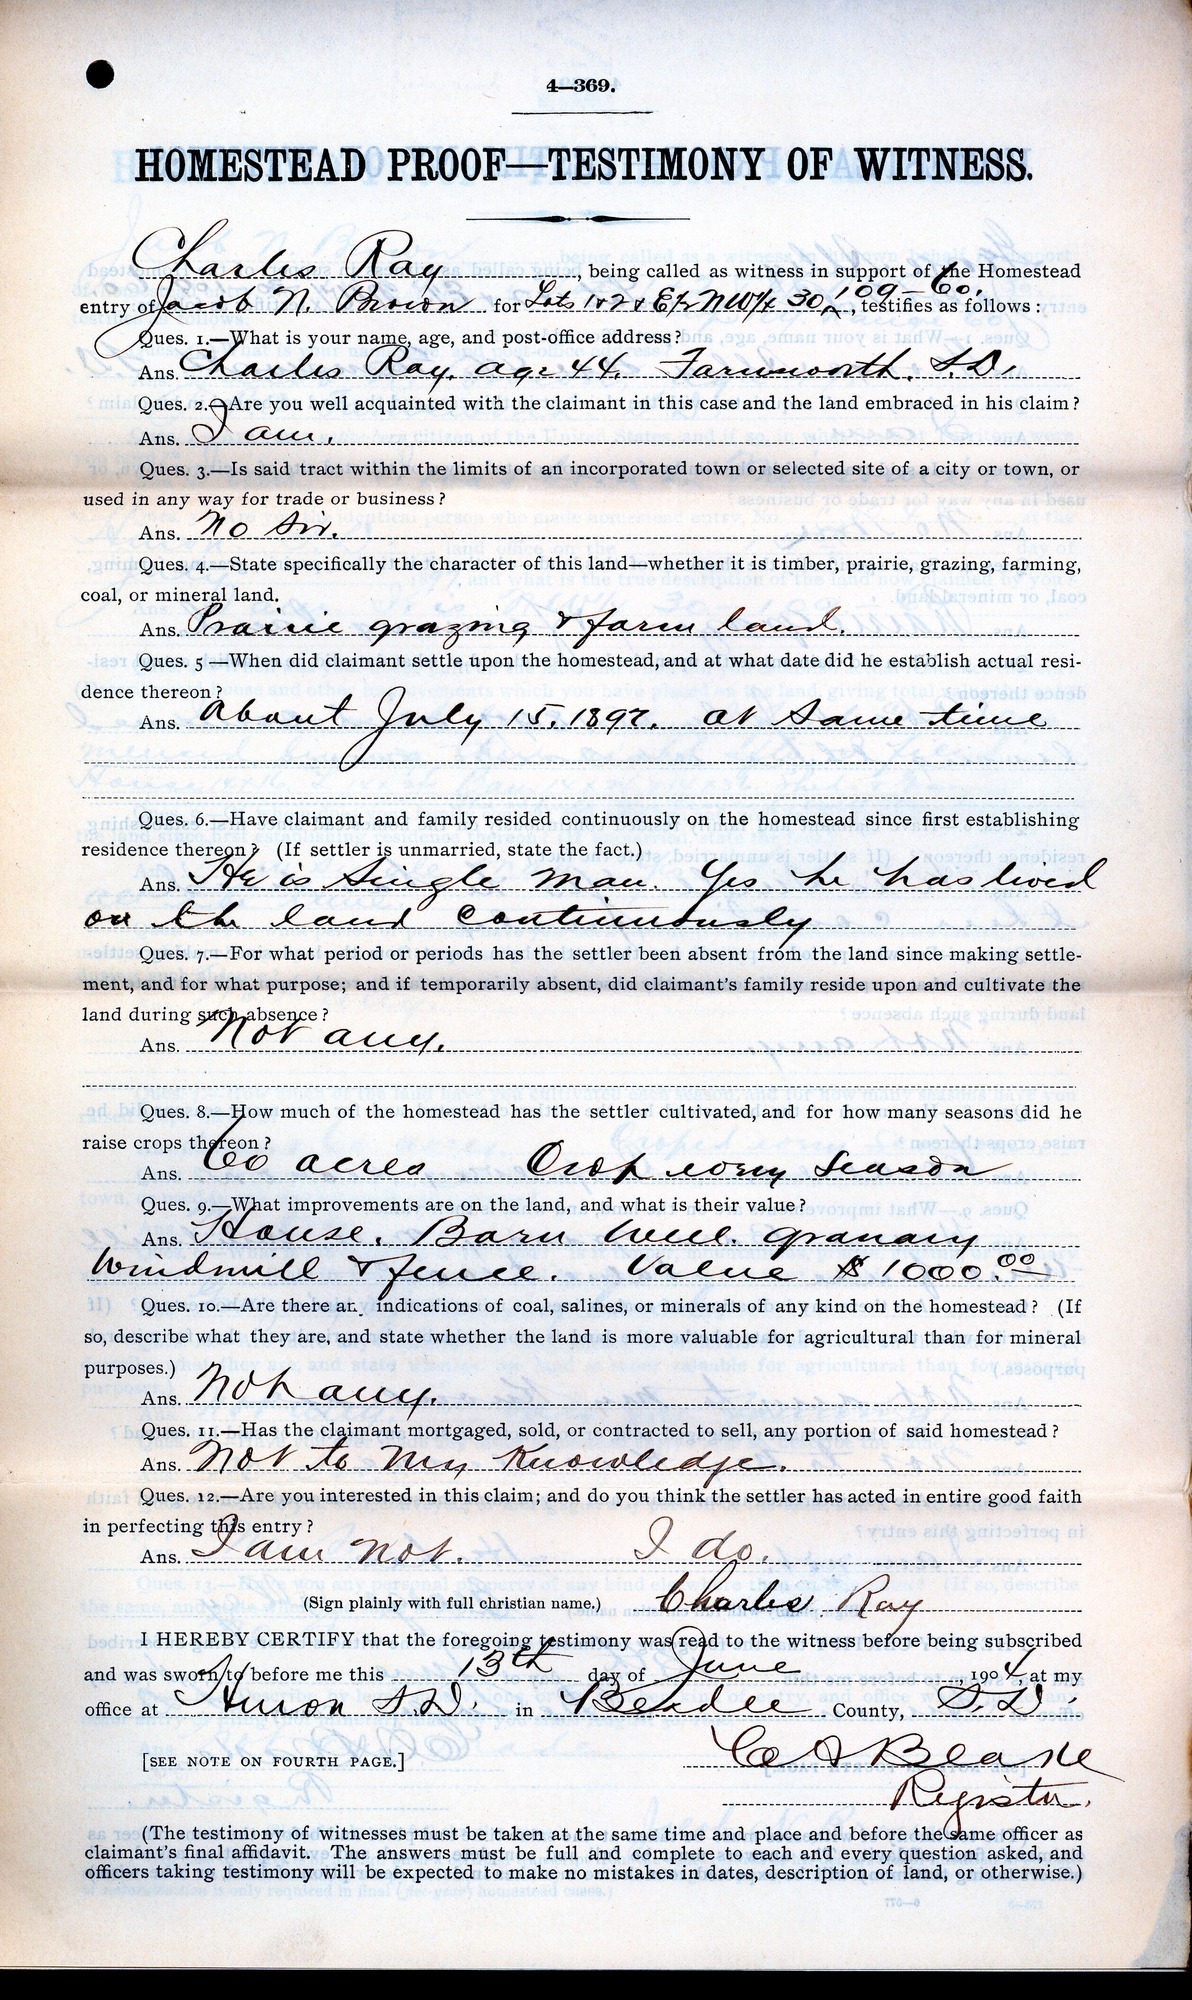 4—369.
HOMESTEAD PROOF—TESTIMONY OF WITNESS.
Charles Ray, being called as witness in support of the Homestead
entry of Jacob N. Brown for Lots 1 & 2 & E½ NW¼ 30, 109–60, testifies as follows:
Ques. 1.—What is your name, age, and post-office address?
Ans. Charles Ray, age 44. Farnworth, S.D.
Ques. 2.—Are you well acquainted with the claimant in this case and the land embraced in his claim?
Ans. I am.
Ques. 3.—Is said tract within the limits of an incorporated town or selected site of a city or town, or
used in any way for trade or business?
Ans. No Sir.
Ques. 4.—State specifically the character of this land—whether it is timber, prairie, grazing, farming,
coal, or mineral land.
Ans. Prairie grazing & farm land.
Ques. 5—When did claimant settle upon the homestead, and at what date did he establish actual resi-
dence thereon?
Ans. About July 15, 1897. at same time
Ques. 6.—Have claimant and family resided continuously on the homestead since first establishing
residence thereon? (If settler is unmarried, state the fact.)
Ans. He is single man. Yes he has lived
on the land continuously
Ques. 7.—For what period or periods has the settler been absent from the land since making settle-
ment, and for what purpose; and if temporarily absent, did claimant's family reside upon and cultivate the
land during such absence?
Ans. Not any.
Ques. 8.—How much of the homestead has the settler cultivated, and for how many seasons did he
raise crops thereon?
Ans. 60 acres Crop every season
Ques. 9.—What improvements are on the land, and what is their value?
Ans. House. Barn Well. granary
Windmill & fence. Value $1000.00
Ques. 10.—Are there an. indications of coal, salines, or minerals of any kind on the homestead? (If
so, describe what they are, and state whether the land is more valuable for agricultural than for mineral
purposes.)
Ans. Not any.
Ques. 11.—Has the claimant mortgaged, sold, or contracted to sell, any portion of said homestead?
Ans. Not to my Knowledge.
Ques. 12.—Are you interested in this claim; and do you think the settler has acted in entire good faith
in perfecting this entry?
Ans. I am not. I do.
(Sign plainly with full christian name.) Charles Ray
I HEREBY CERTIFY that the foregoing testimony was read to the witness before being subscribed
and was sworn to before me this 13th day of June, 1904, at my
office at Huron S.D. in Beadle County, S.D.
[SEE NOTE ON FOURTH PAGE.]
Register.
(The testimony of witnesses must be taken at the same time and place and before the same officer as
claimant's final affidavit. The answers must be full and complete to each and every question asked, and
officers taking testimony will be expected to make no mistakes in dates, description of land, or otherwise.)